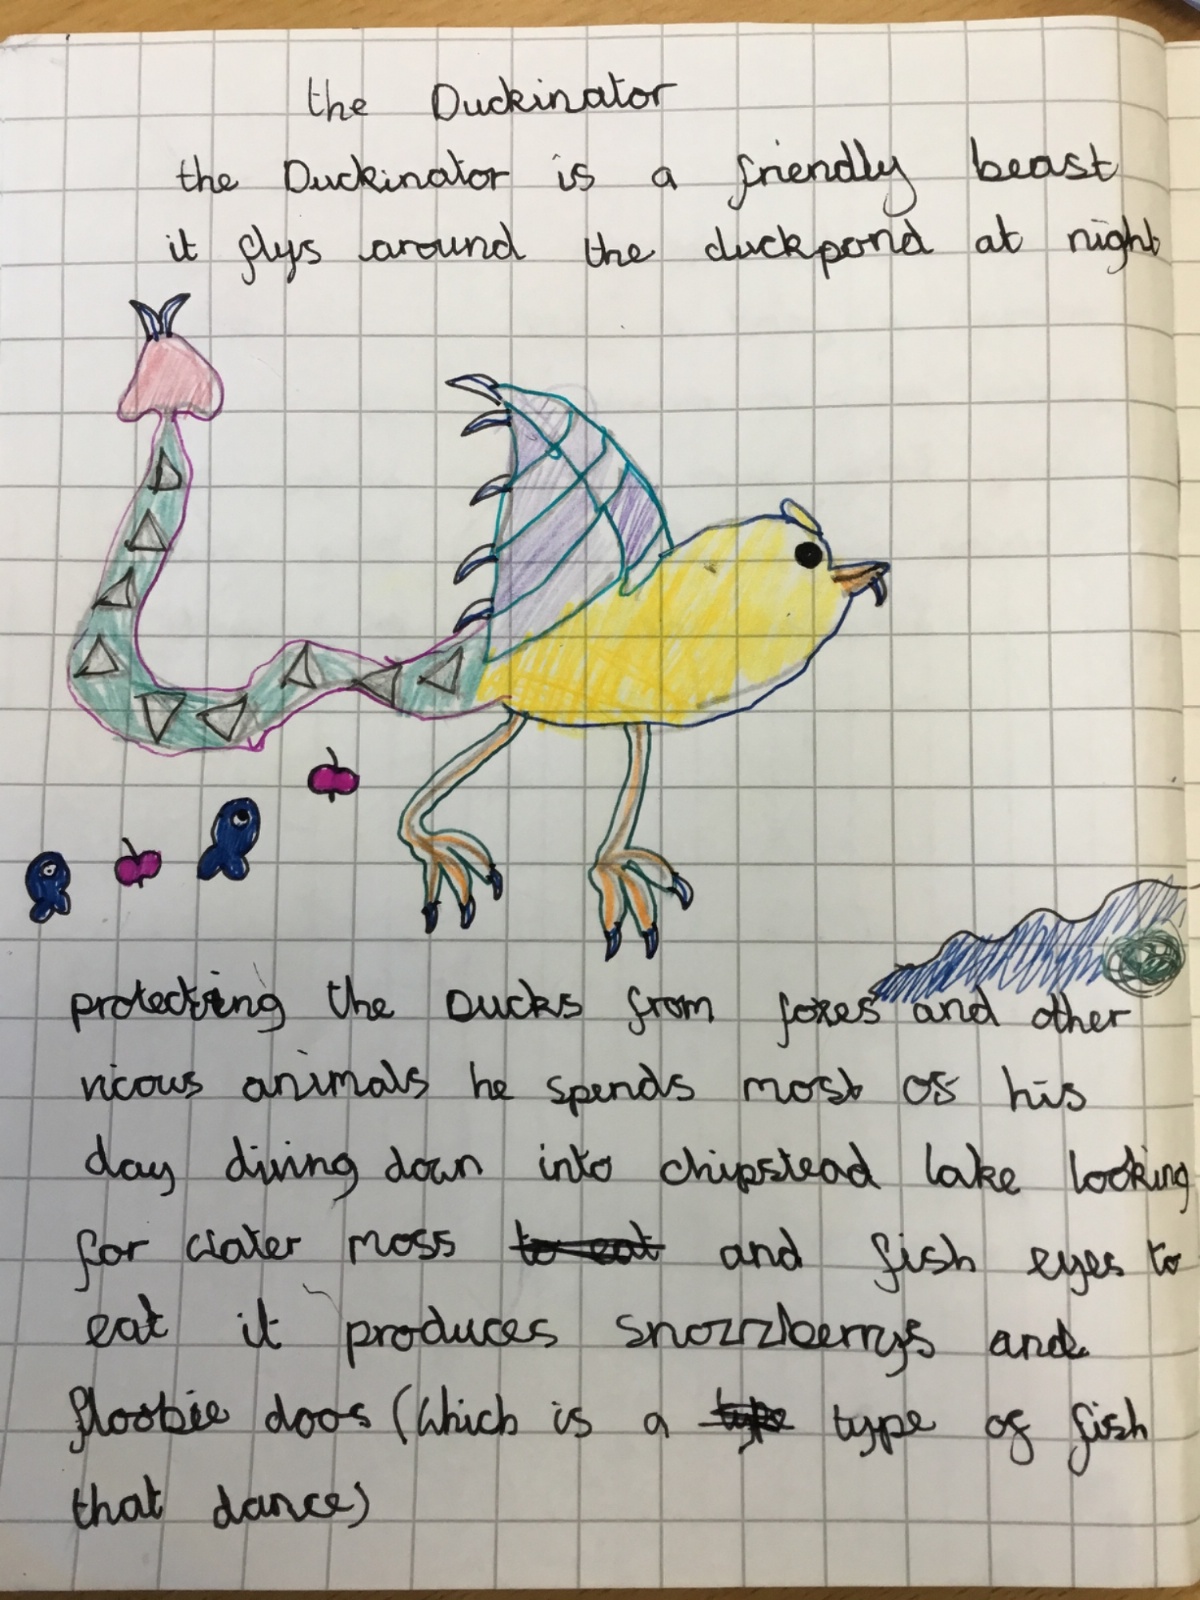 the Duckinator
the Duckinator is a friendly beast
it flys around the duckpond at night
protecting the Ducks from foxes and other
vicous animals he spends most of his
day diving down into chipstead lake looking
for water moss to eat and fish eyes to
eat it produces snozzberrys and
floobie doos (which is a type type of fish
that dance)